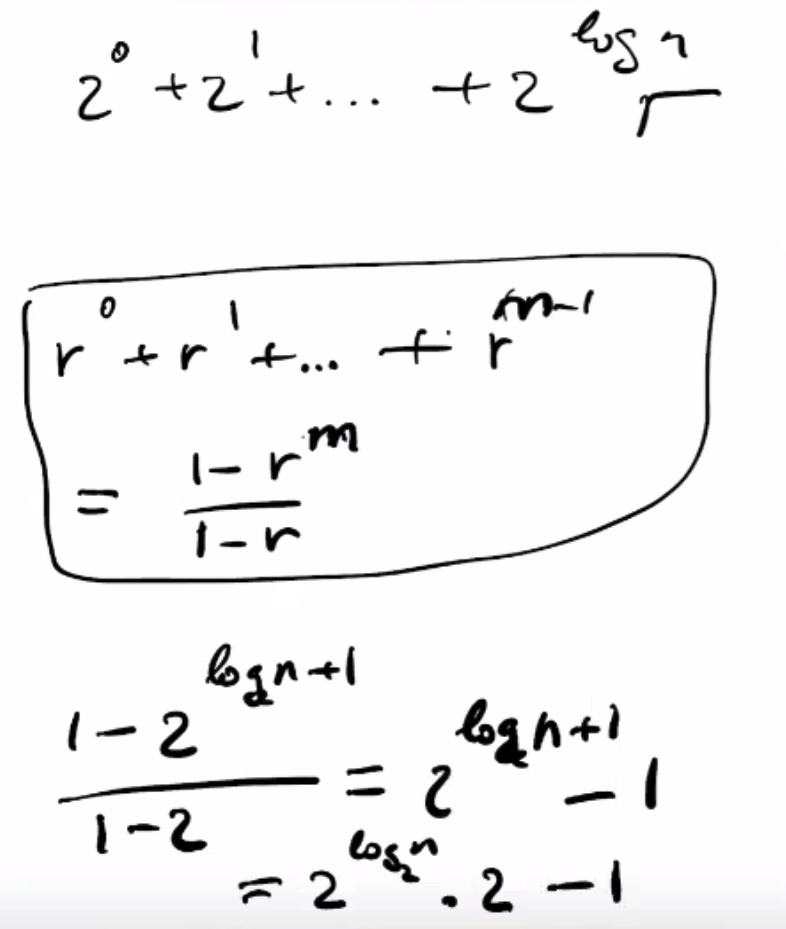 2⁰ + 2¹ + ... + 2^{log n}
r⁰ + r¹ + ... + r^{m-1}
= \frac{1 - r^m}{1 - r}
\frac{1 - 2^{log₂n+1}}{1 - 2} = 2^{log₂n+1} - 1
= 2^{log₂n} . 2 - 1